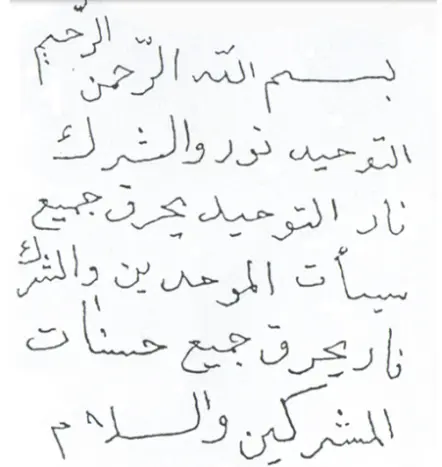 بسم الله الرّحمن الرّحيم
التوحيد نور والشرك
نار التوحيد يحرق جميع
سيأت الموحدين والشرك
نار يحرق جميع حسنات
المشركين والسلام